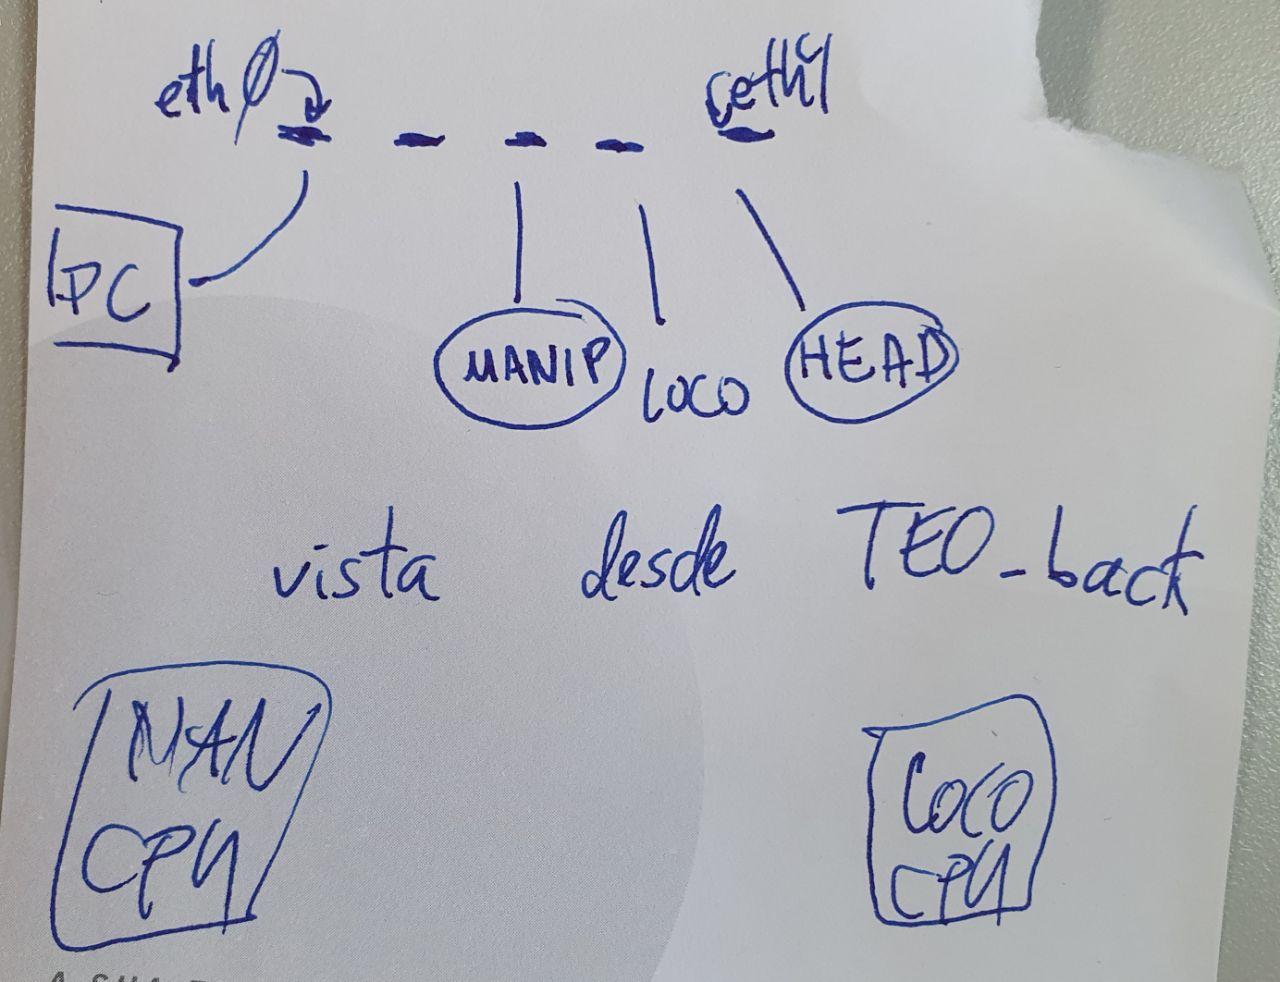 eth0 eth4
PC
MANIP LOCO HEAD
vista desde TEO_back
MAN LOCO
CPU CPU